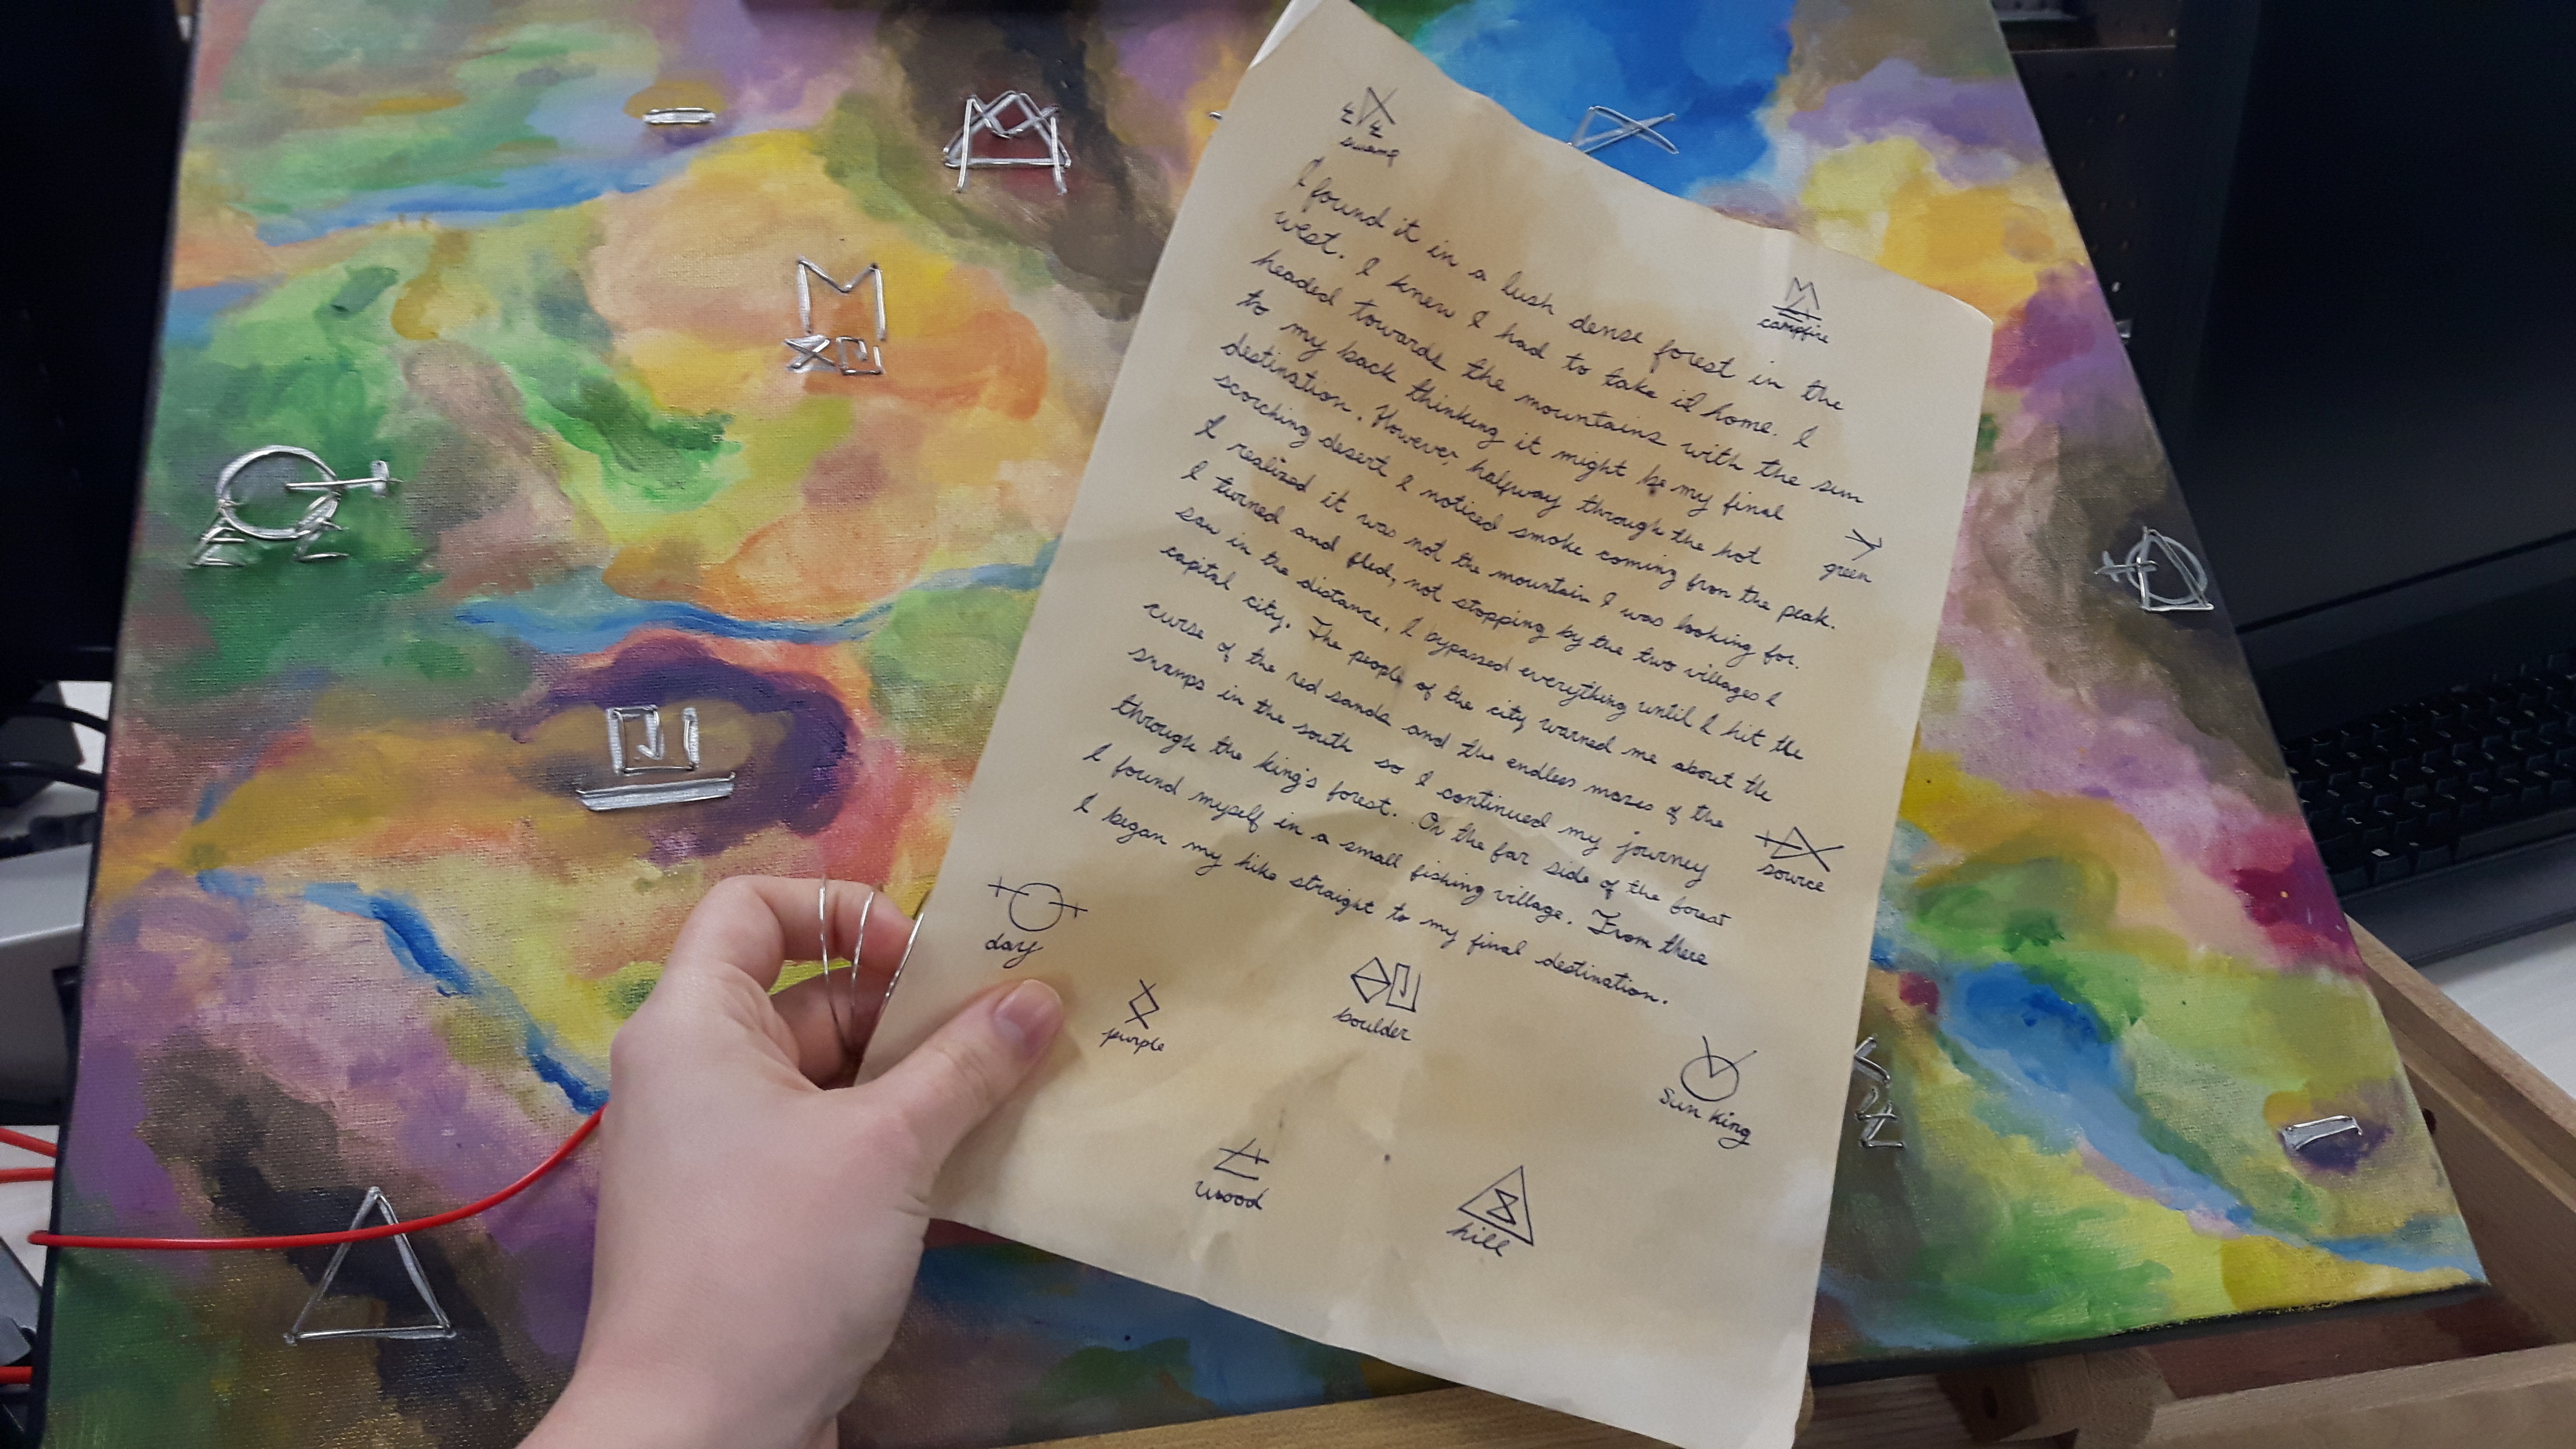 swamp
I found it in a lush dense forest in the
west. I knew I had to take it home. I
headed towards the mountains with the sun
to my back thinking it might be my final
destination. However, halfway through the hot
scorching desert I noticed smoke coming from the peak.
I realized it was not the mountain I was looking for.
I turned and fled, not stopping by the two villages I
saw in the distance. I bypassed everything until I hit the
capital city. The people of the city warned me about the
curse of the red sands and the endless mazes of the
swamps in the south so I continued my journey
through the king's forest. On the far side of the forest
I found myself in a small fishing village. From there
I began my hike straight to my final destination.
campfire
green
source
day
purple
boulder
sun king
wood
hill